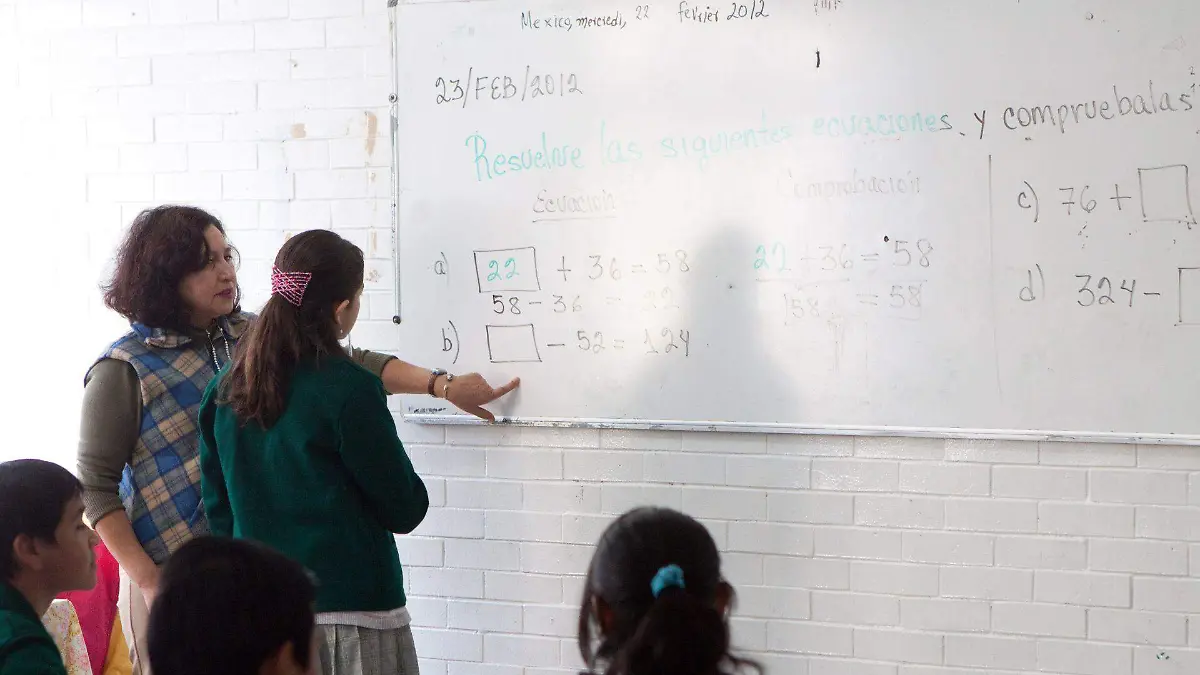 Mexico, mercredi, 22 fevrier 2012
23/FEB/2012
Resuelve las siguientes ecuaciones, y compruebalas
Ecuación Comprobación
a) 22 + 36 = 58 22 + 36 = 58
58 - 36 = 22 58 = 58
b) - 52 = 124
c) 76 +
d) 324 -